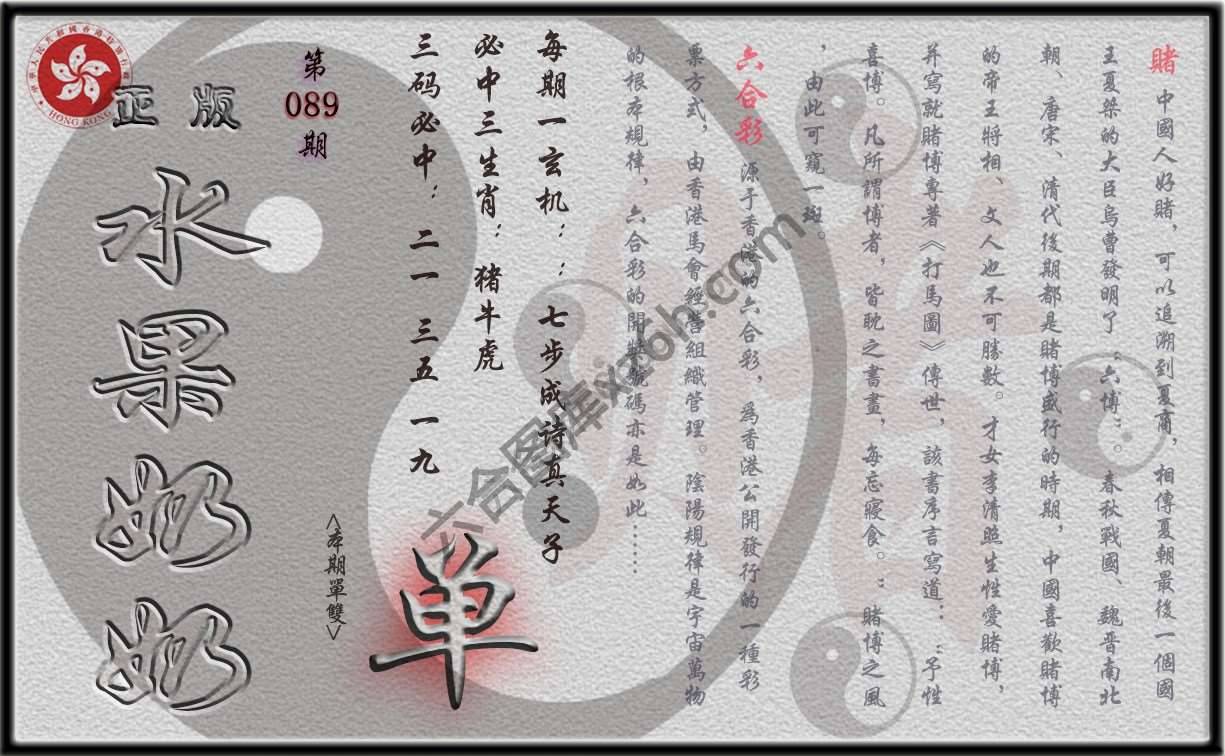 賭 中國人好賭，可以追溯到夏商，相傳夏朝最後一個國
王夏桀的大臣烏曹發明了“六博”。春秋戰國、魏晋南北
朝、唐宋、清代後期都是賭博盛行的時期，中國喜歡賭博
的帝王將相、文人也不可勝數。才女李清照生性愛賭博，
并寫就賭博專著《打馬圖》傳世，該書序言寫道：“予性
喜博。凡所謂博者，皆耽之書畫，每忘寢食。”賭博之風
，由此可窺一斑。
六合彩 源于香港的六合彩，為香港公開發行的一種彩
票方式，由香港馬會經營組織管理。陰陽規律是宇宙萬物
的根本規律，六合彩的開獎號碼亦是如此……
每期一玄机：：七步成诗真天子
必中三生肖：猪牛虎
三码必中：二一 三五 一九
第
089
期
<本期單雙>
单
正版
水果奶奶
HONG KONG
六合图库xz6h.com